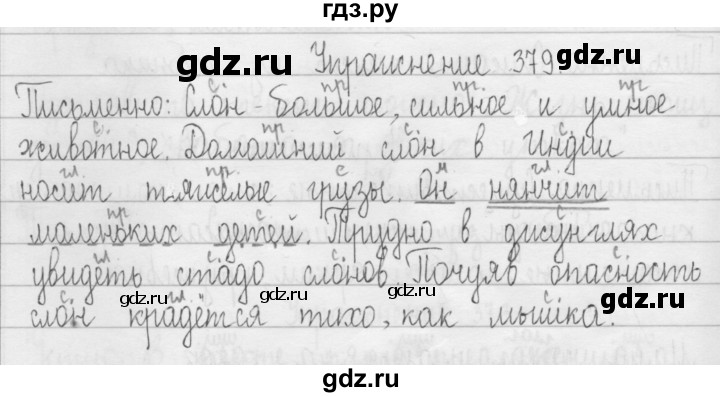 гдз.ру
gdz.ru gdz.ru
Упражнение 379.
Письменно: Слон - большое, сильное и умное
животное. Домашний слон в Индии
носит тяжёлые грузы. Он нянчит
маленьких детей. Трудно в джунглях
увидеть стадо слонов. Почуяв опасность
gdz.ru gdz.ru
слон крадётся тихо, как мышка.
gdz.ru gdz.ru
gdz.ru